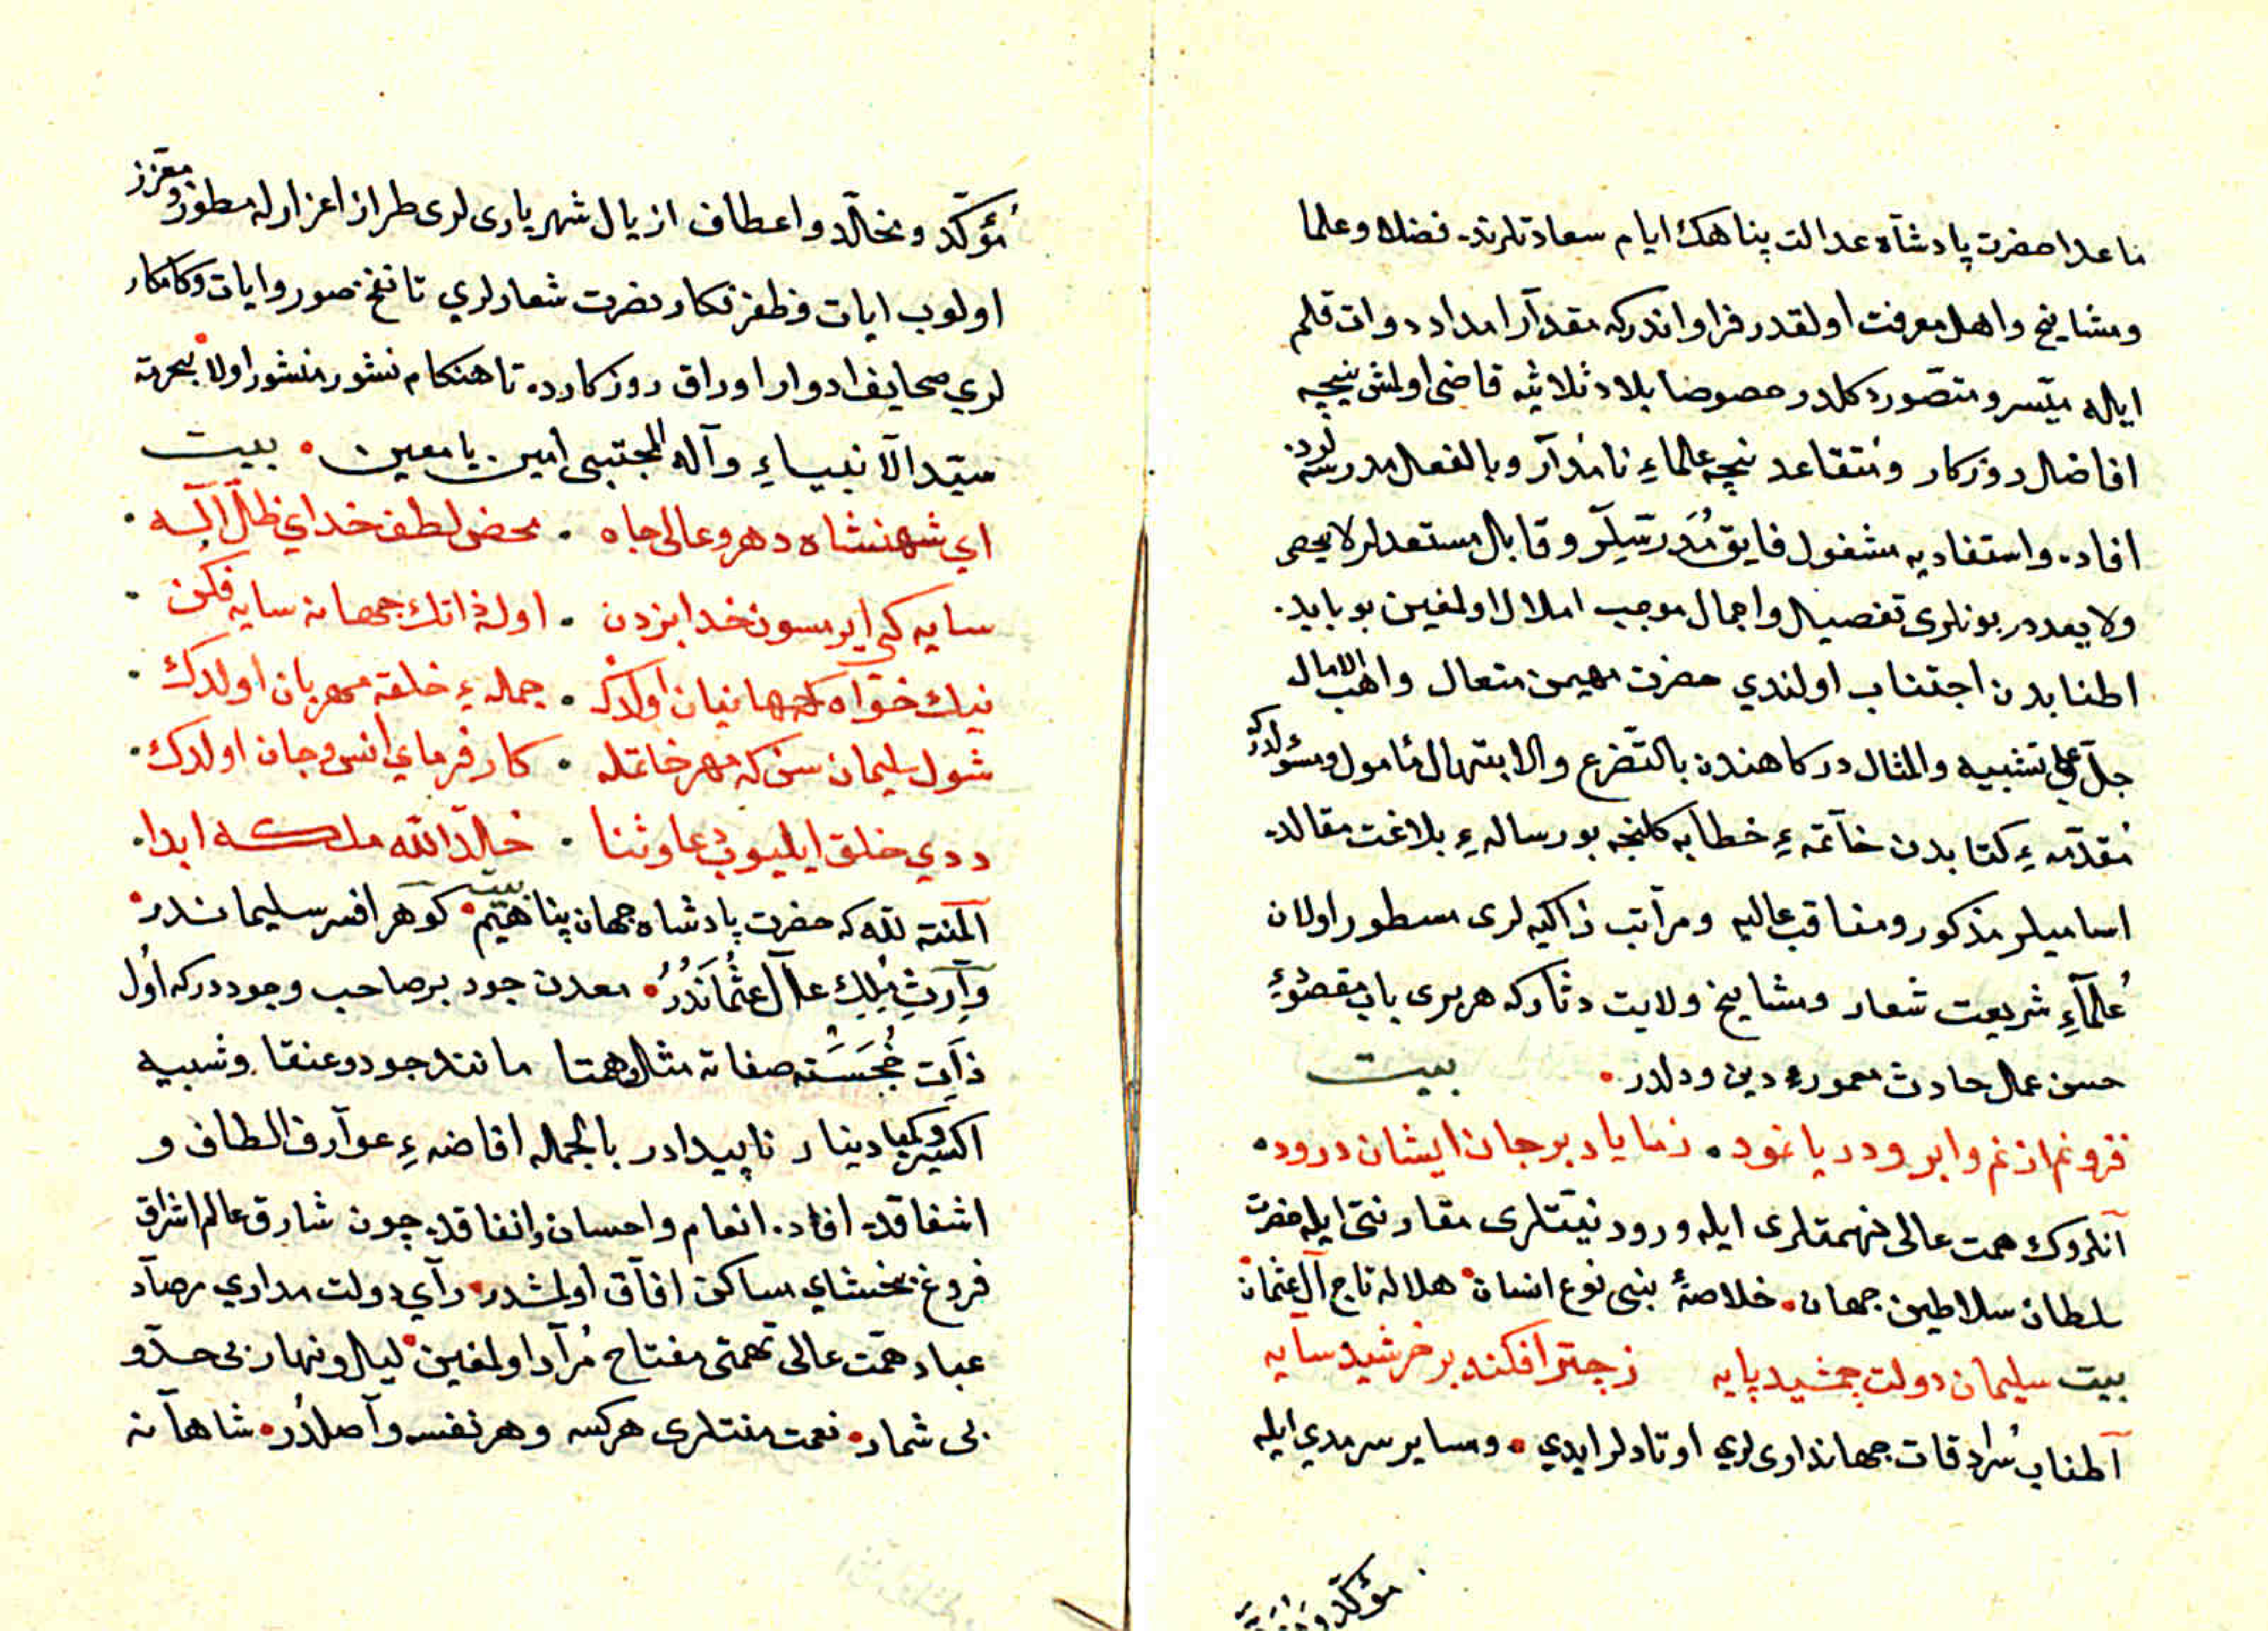 ماعدا حضرت پادشاه عدالت پناهك ايام سعادتلرنده فضلا وعلما
ومشايخ واهل معرفت اولقدر فراواندركه مقدار امداد دوات قلم
ايله ميسر ومتصور دكلدر خصوصا بلاد ثلاثيه قاضى اولمش نيجه
افاضل روزكار ومتقاعد نيجه علماء نامدار وبالفعل مدرسه لرده
افاده واستفاديه مشغول فايق مدرسيلر وقابل مستعدلر لا يحصى
ولا يعددر بونلرى تفصيل واجمال موجب املال اولمغين بو بابده
اطنابدن اجتناب اولندي حضرت مهيمن متعال واهب الامال
جل عن تشبيه والمثال دركاهندن بالتضرع والابتهال مأمول ومسئولدركه
مقدمهء كتابدن خاتمهء خطابه كلنجه بو رسالهء بلاغت مقالده
اساميلر مذكور ومناقب عاليه ومراتب زاكيه لرى مسطور اولان
علماء شريعت شعار ومشايخ ولايت دثاركه هر برى باب مقصوءء
حسن عمل حادث معمورهء دين ودلدر بيت
فزونم از نم وابر ودريا نمود زما ياد بر جان ايشان درود
آنلروك همت عالى نهمتلرى ايله ورود نيتلرى مقارنتى ايله حضرت
سلطان سلاطين جهان خلاصهٔ بنى نوع انسان هلاله تاج آل عثمان
بيت سليمان دولت جمشيد پايه ز چتر افكنده بر خرشيد سايه
آطناب سرادقات جهاندارى لري اوتادلر ايدي ومسايرسرمدي ايله
مؤكد و
مؤكد ومخلد واعطاف ازيال شهريارى لرى طراز اعزازله مطرز ومعزز
اولوب ايات وظفر نكار نصرت شعارلري تا نفخ صور وايات وكامكار
لري صحايف ادوار اوراق روزكارده تا هنكام نشور منشور اولا بحرمة
سيد الانبياء وآله المجتبى امين يا معين بيت
اي شهنشاه دهر وعالى جاه محض لطف خداي ظل اله
سايه كى ايرمسون خدا بزدن اوله ذاتك جهانه سايه فكن
نيك خواه جهانيان اولدك جملهء خلقه مهربان اولدك
شول سليمان سن كه مهر خاتمله كار فرماي انس وجان اولدك
ددي خلق ايليوب دعا وثنا خلد الله ملكه ابدا
المنة لله كه حضرت پادشاه جهان پناهيم بيت كوهر افسر سليماندر
وارث ملك عال عثماندر معدن جود بر صاحب وجوددركه اول
ذات خجسته صفاته مثل وهمتا مانند جود وعنقا وشبيه
اكسير وكيميا دينار ناپيدادر بالجمله افاضهء عوارف الطاف و
اشفاقده افاده انعام واحسان وانفاقده چون شارق عالم اشراق
فروغ بخشاي ساكن افاق اولمشدر رآي دولت مداري مرصاد
عباد همت عالى نهمتى مفتاح مراد اولمغين ليل ونهار بى حد و
بى شمار نعمت منتلرى هركسه وهر نفسه واصلدر شاهانه